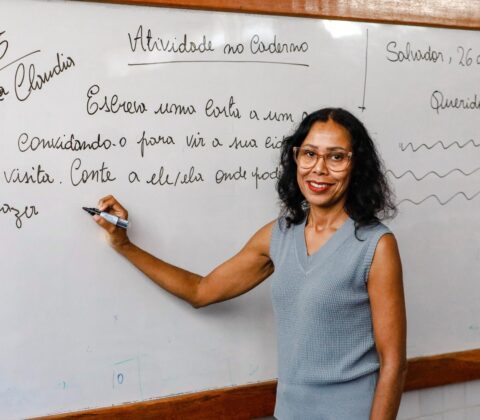 Claudia
Atividade no Caderno
Escreva uma carta a um
Convidando-o para vir a sua
visita. Conte a ele/ela onde
Salvador, 26
Querid